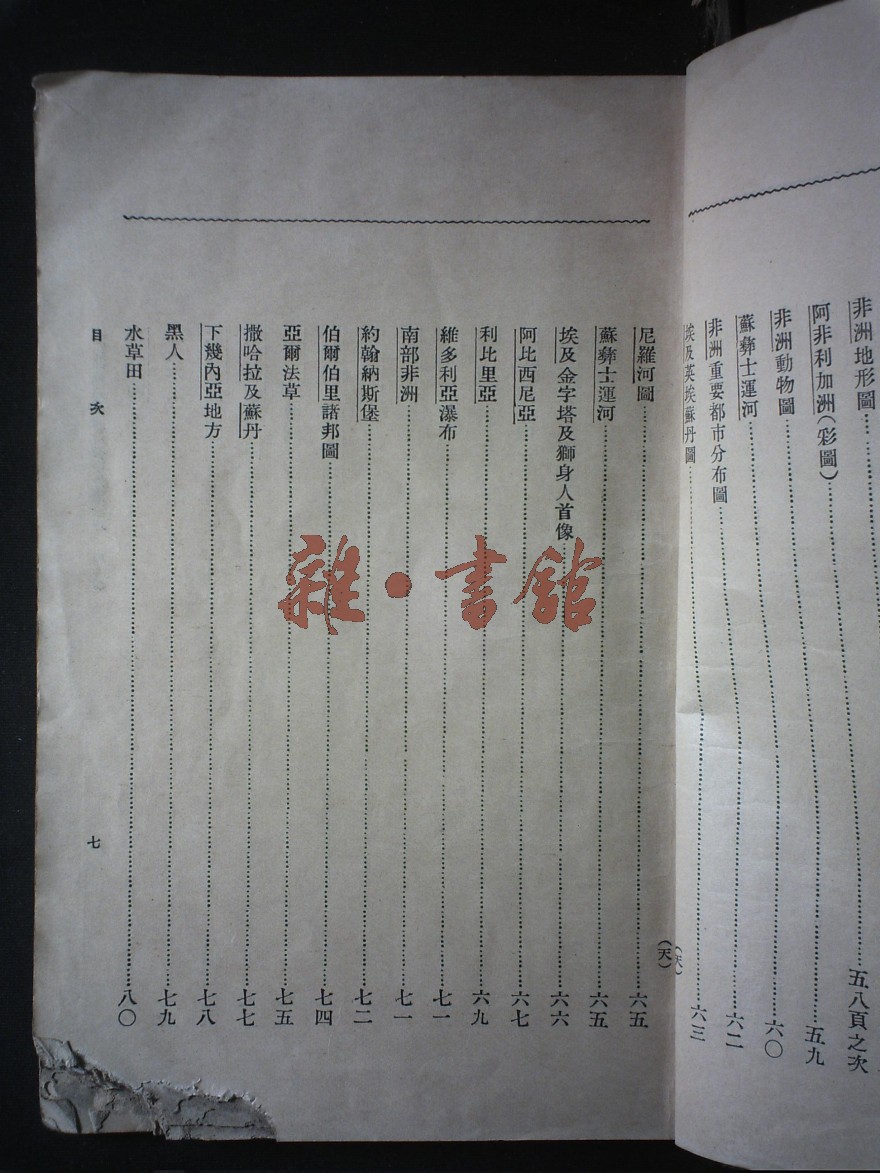 非洲地形圖……五八頁之次
阿非利加洲(彩圖)……五九
非洲動物圖……六〇
蘇彝士運河……六二
非洲重要都市分布圖……六三
埃及英埃蘇丹圖……
(天)
(天)
尼羅河圖……六五
蘇彝士運河……六五
埃及金字塔及獅身人首像……六六
阿比西尼亞……六七
利比里亞……六九
維多利亞瀑布……七一
南部非洲……七一
約翰納斯堡……七二
伯爾伯里諸邦圖……七四
亞爾法草……七五
撒哈拉及蘇丹……七七
下幾內亞地方……七八
黑人……七九
水草田……八〇
目次
七
雜·書館